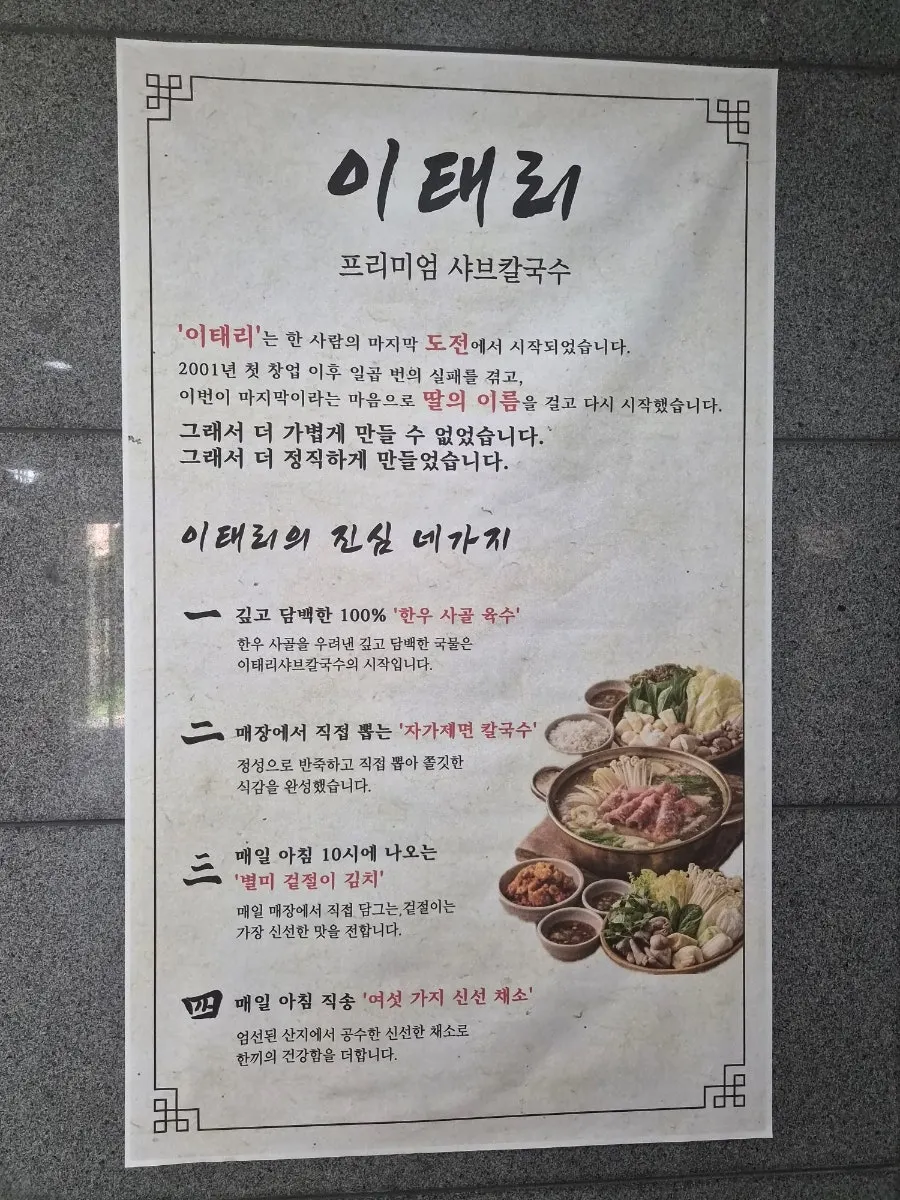 이태리
프리미엄 샤브칼국수
'이태리'는 한 사람의 마지막 도전에서 시작되었습니다.
2001년 첫 창업 이후 일곱 번의 실패를 겪고,
이번이 마지막이라는 마음으로 딸의 이름을 걸고 다시 시작했습니다.
그래서 더 가볍게 만들 수 없었습니다.
그래서 더 정직하게 만들었습니다.
이태리의 진심 네가지
一 깊고 담백한 100% '한우 사골 육수'
한우 사골을 우려낸 깊고 담백한 국물은
이태리샤브칼국수의 시작입니다.
二 매장에서 직접 뽑는 '자가제면 칼국수'
정성으로 반죽하고 직접 뽑아 쫄깃한
식감을 완성했습니다.
三 매일 아침 10시에 나오는
'별미 겉절이 김치'
매일 매장에서 직접 담그는,겉절이는
가장 신선한 맛을 전합니다.
四 매일 아침 직송 '여섯 가지 신선 채소'
엄선된 산지에서 공수한 신선한 채소로
한끼의 건강함을 더합니다.